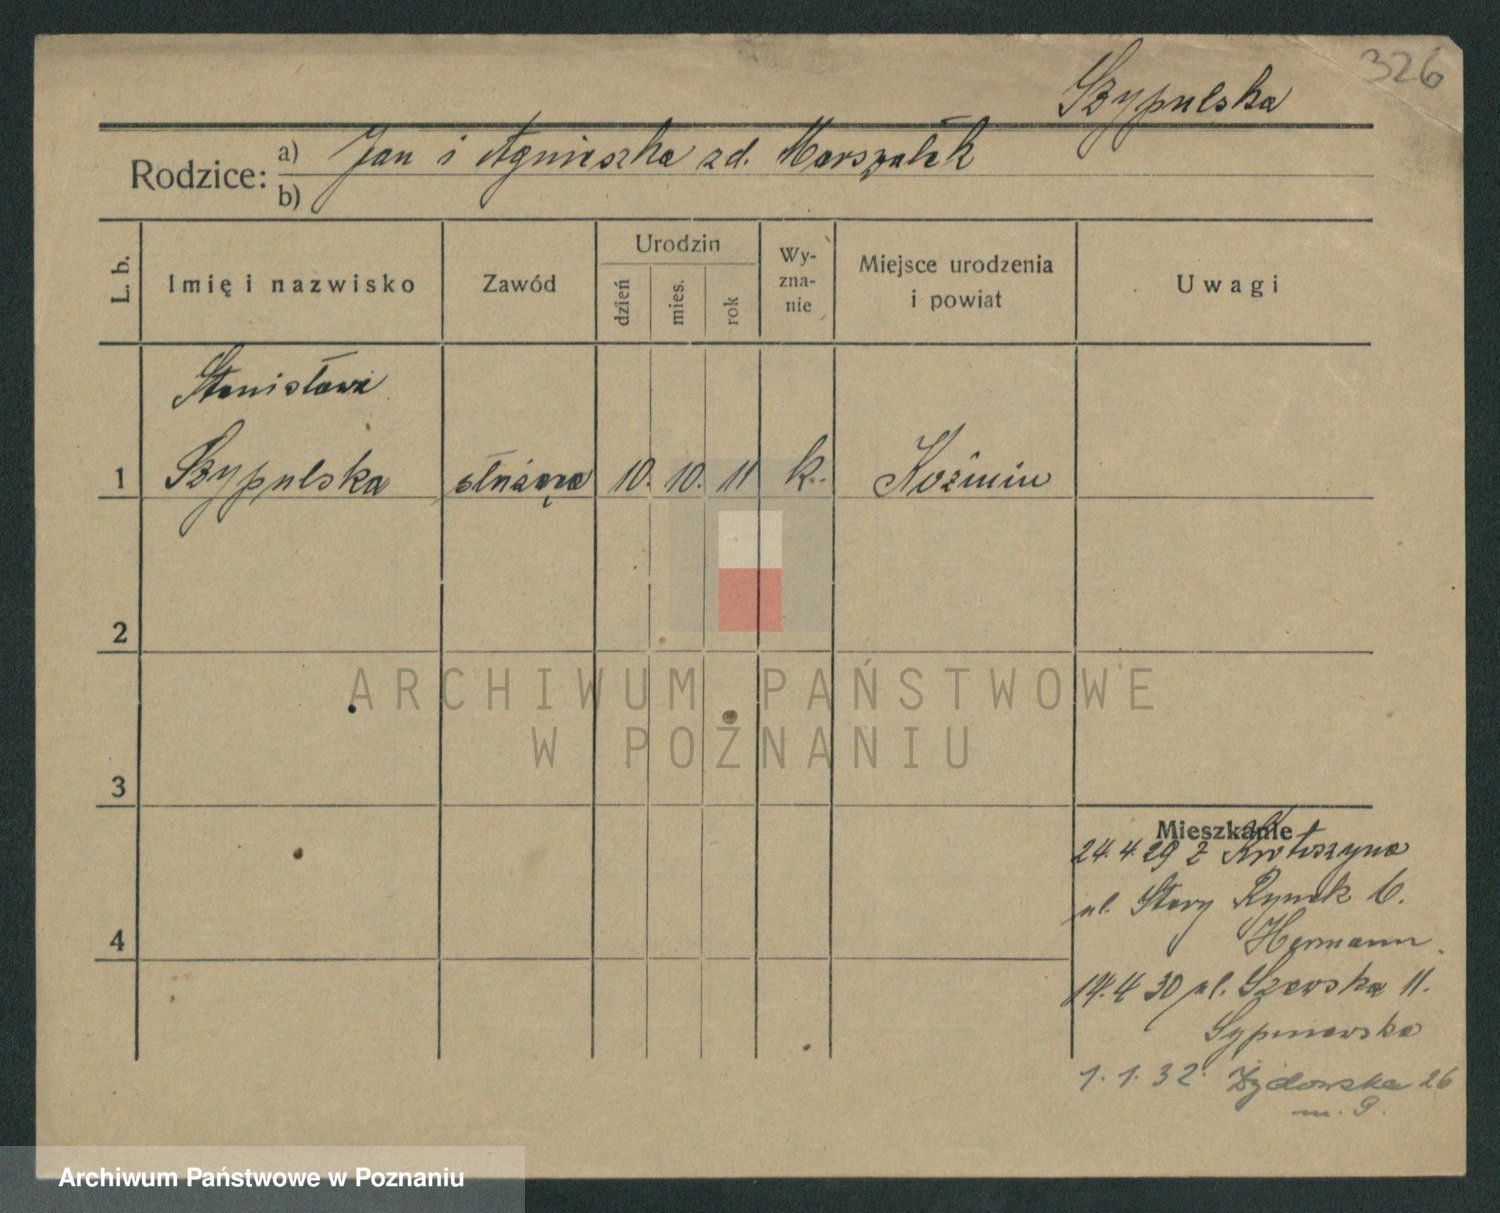 326
Szypulska
Rodzice: a) Jan i Agnieszka zd. Marszałek
b)
L. b.
Imię i nazwisko
Zawód
Urodzin
dzień
mies.
rok
Wy-
zna-
nie
Miejsce urodzenia
i powiat
Uwagi
Stanisława
1 Szypulska służąca 10. 10. 11 k. Koźmin
2
3
4
ARCHIWUM PAŃSTWOWE
W POZNANIU
Mieszkanie
24.4.29 z Krotoszyna
ul. Stary Rynek 6.
Hermann.
14.4 30 ul. Szewska 11.
1.1.32. Żydowska 26
Archiwum Państwowe w Poznaniu